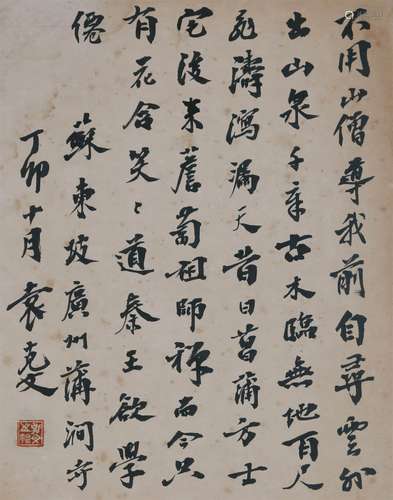 不用山僧尊我前自尋雲外
出山泉千章古木臨無地百尺
飛濤瀉漏天昔日菖蒲方士
宅後來薝蔔祖師禪而今只
有花含笑〻道秦王欲學
僊
蘇東坡廣州蒲澗寺
丁卯十月袁克文